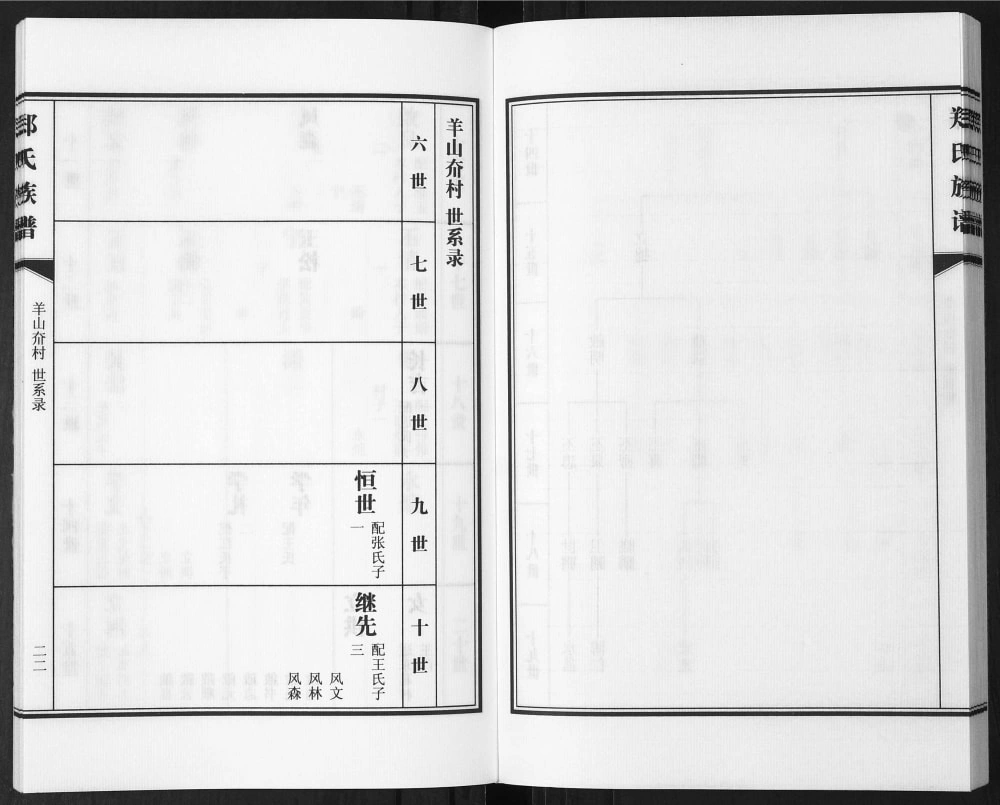 郑氏族谱
羊山夼村 世系录
六世
七世
八世
九世
十世
恒世
配张氏子
一
继先
配王氏子
三
风文
风林
风森
郑氏族谱
羊山夼村 世系录
二二